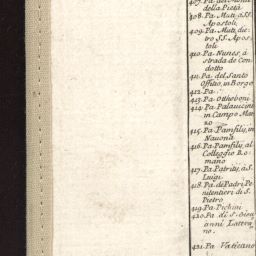 407. Pa. del Monte
della Pietà
408. Pa. Muti, a SS.
Apostoli.
409. Pa. Muti, die-
tro SS. Apos-
toli
410. Pa. Nunes, a
strada de Con-
dotto
411. Pa. del Santo
Offitio, in Borgo
412. Pa.
413. Pa. Otthoboni
414. Pa. Palavicini
in Campo Mar-
zo
415. Pa. Pamfilij, in
Navona
416. Pa. Pamfilij, al
Colleggio Ro-
mano
417. Pa. Patritij, a S.
Luigi
418. Pa. di Padri Pe-
nitentieri di S.
Pietro
419. Pa. Pichini
420. Pa. di S. Giou
anni Latera
no.
421. Pa. Vaticano